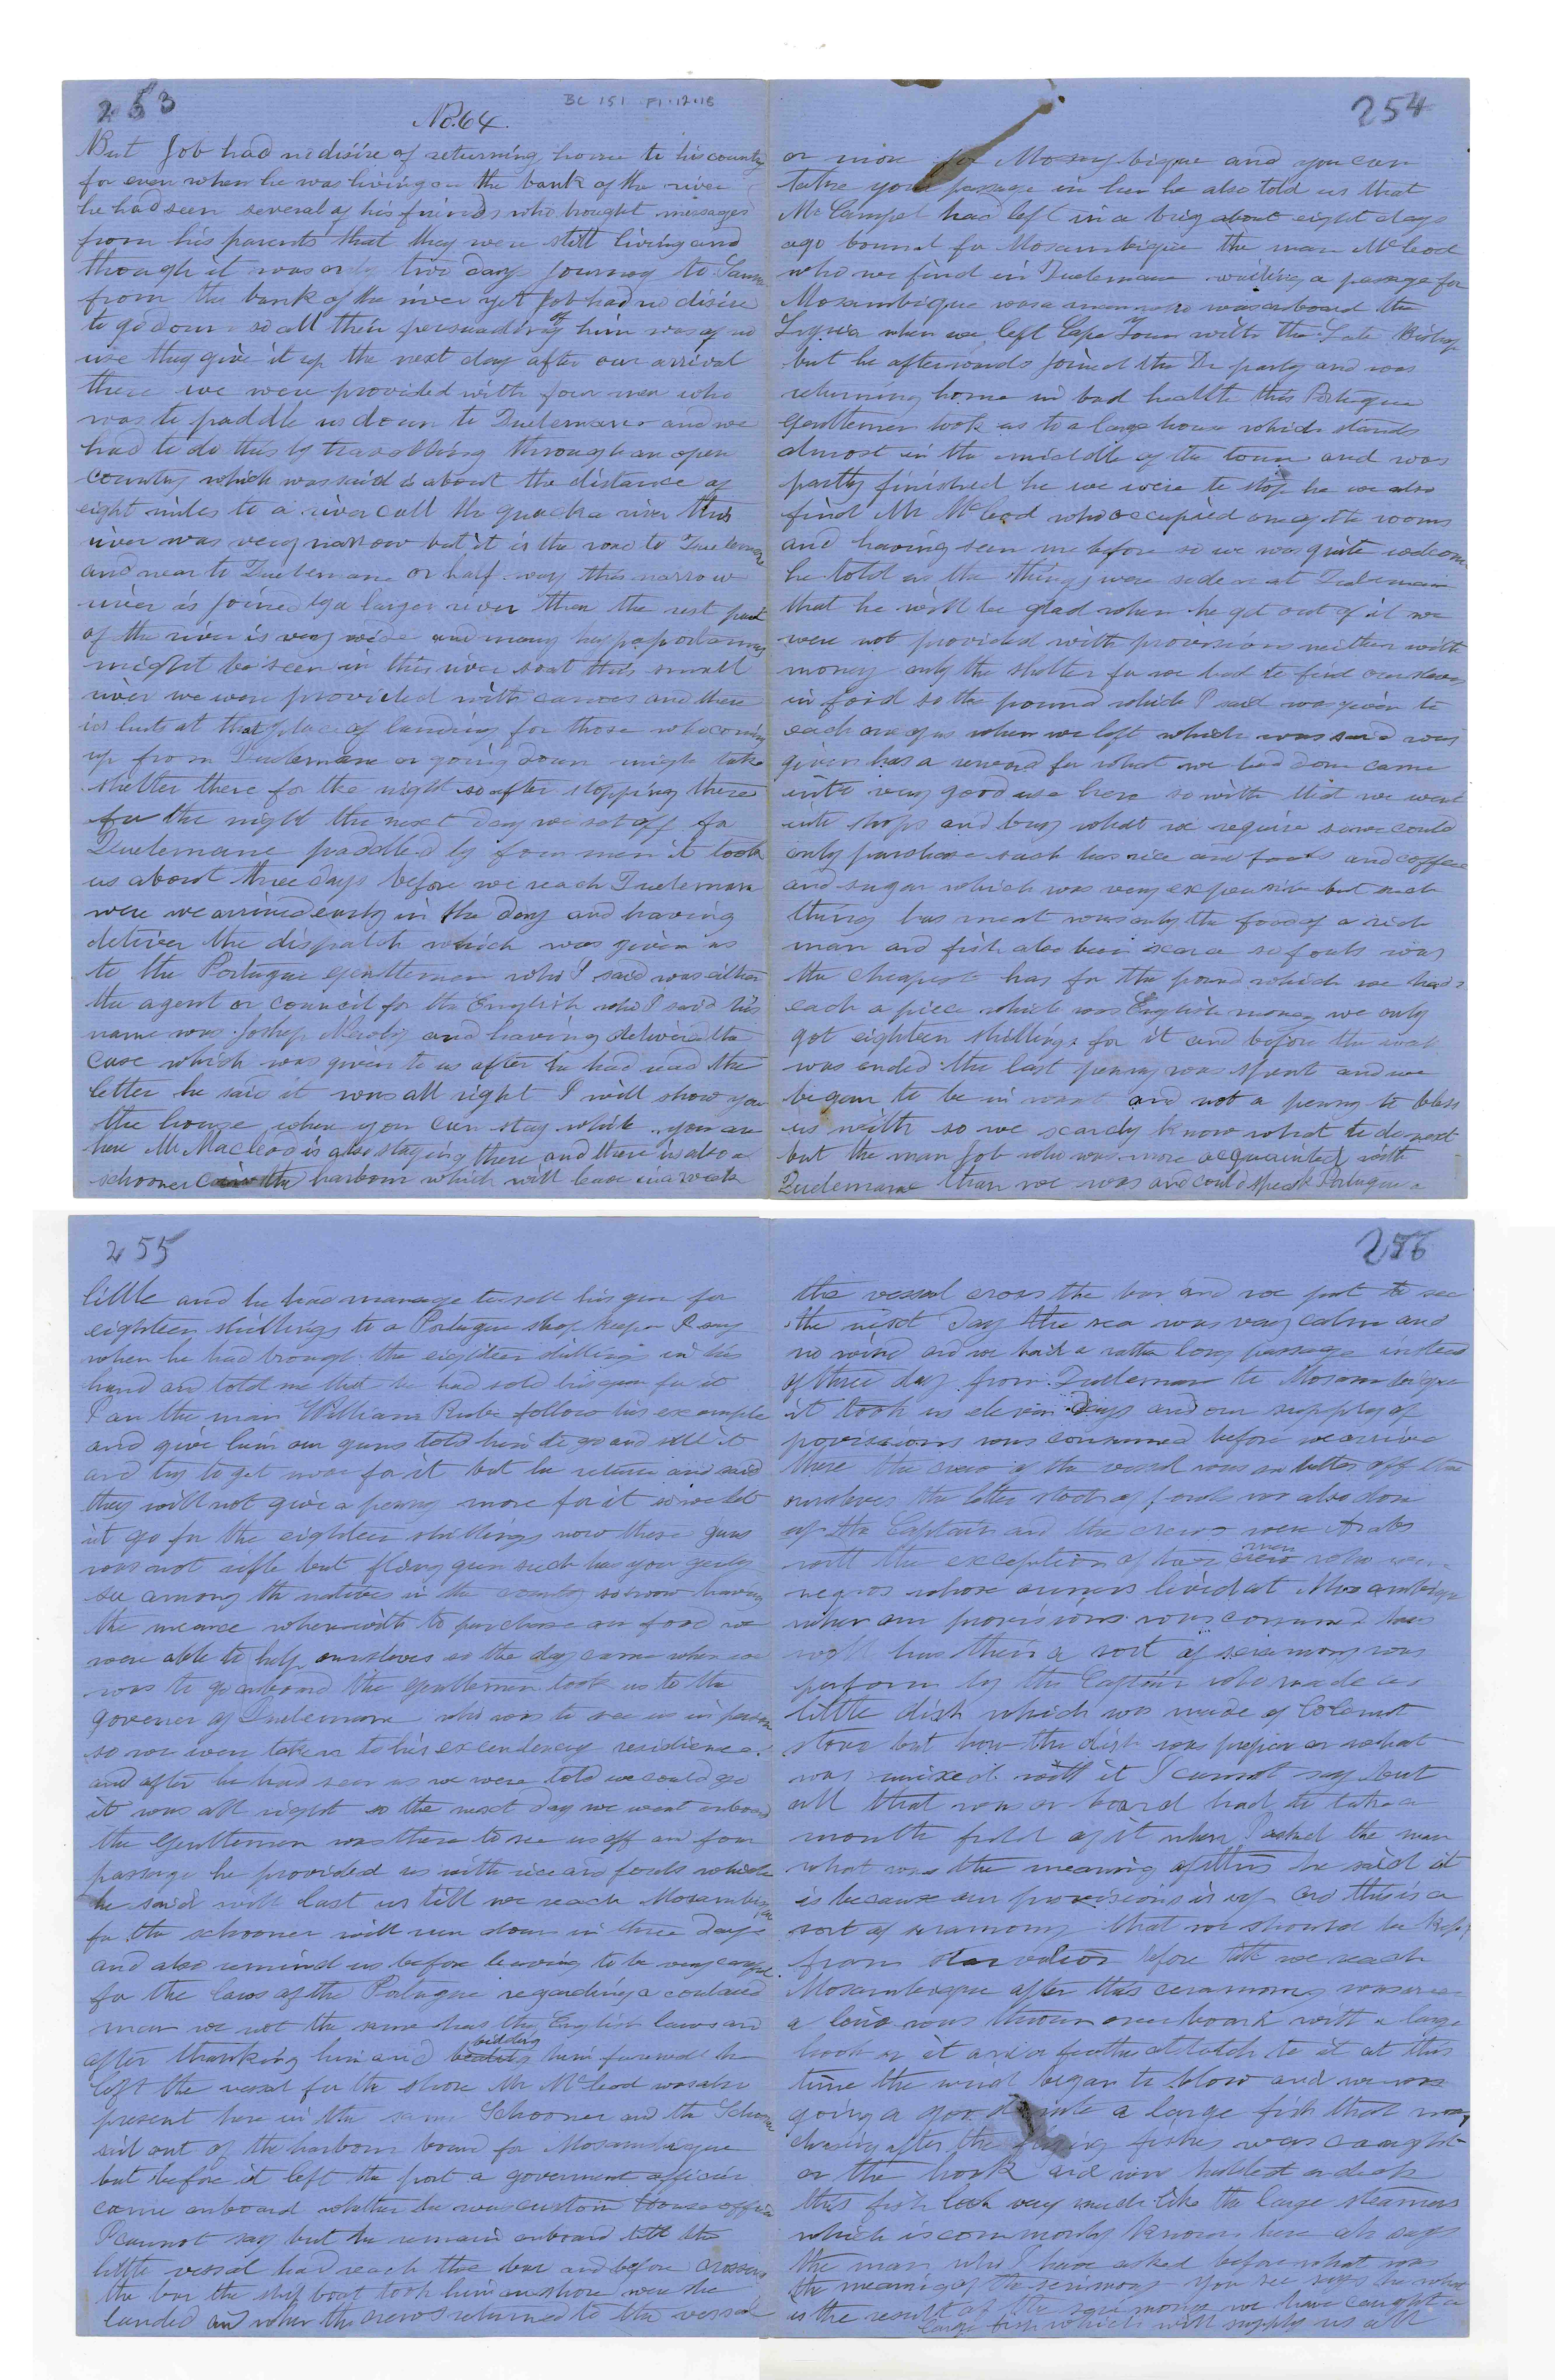 253
BC 151 F1.12.15
No. 64.
But Job had no disire of returning home to his country
for even when he was living on the bank of the river
he had seen several of his friends who brought messages
from his parents that they were still living and
though it was only two days journey to
from the bank of the river yet Job had no disire
to go down so all their persuading of him was of no
use they give it up the next day after our arrival
there we were provided with four men who
was to paddle us down to Quelemane and we
had to do this by travelling through an open
country which was said is about the distance of
eight miles to a river call the quacka river this
river was very narrow but it is the road to Quelemane
and near to Quelemane or half way this narrow
river is joined by a larger river then the rest part
of the river is very wide and many
might be seen in this river so at this small
river we were provided with canoes and there
is huts at that place of landing for those who coming
up from Quelemane or going down might take
shelter there for the night so after stopping there
for the night the next day we set off for
Quelemane paddled by four men it took
us about three days before we reach Quelemane
were we arrived early in the day and having
deliver the dispatch which was given us
to the Portugue gentlemen who I said was either
the agent or council for the English who I said his
name was and having delivered the
case which was given to us after he had read the
letter he said it was all right I will show you
the house where you can stay while you are
here Mr Macleod is also staying there and there is also a
schooner in the harbour which will leave in a week
254
or more for Mosambique and you can
take your passage in her he also told us that
Mr Campel had left in a brig about eight days
ago bound for Mosambique the man McLeod
who we find in Quelemane waiting a passage for
Mosambique was a man who was onboard the
when we left Cape Town with the Late Bishop
but he afterwards joined the Dr party and was
returning home in bad health this Portugue
gentlemen took us to a large house which stands
almost in the middle of the town and was
partly finished he we were to stop he we also
find Mr McLeod who occupied one of the rooms
and having seen me before so we was quite welcome
he told us the things were so dear at Quelemane
that he will be glad when he get out of it we
were not provided with provisions neither with
money only the shelter for we had to find ourselves
in food so the pound which I said was given to
each one of us when we left which was said was
given has a reward for what we had done came
into very good use here so with that we went
into shops and buy what we require so we could
only purchase such has rice and fouls and coffee
and sugar which was very expensive but such
thing has meat was only the food of a rich
man and fish also been scarce so fouls was
the cheapest has for the pound which we had
each a piece which was English money we only
got eighteen shillings for it and before the week
was ended the last penny was spent and we
began to be in want and not a penny to bless
us with so we scarcly know what to do next
but the man Job who was more acquainted with
Quelemane than we was and could speak Portugue a
255
little and he had manage to sell his gun for
eighteen shillings to a Portugue shop keeper I say
when he had brought the eighteen shillings in his
hand and told me that he had sold his gun for it
I an the man William Rube follow his example
and give him our guns told him to go and sell it
and try to get more for it but he return and said
they will not give a penny more for it so we let
it go for the eighteen shillings now these guns
was not rifle but gun such has you
see among the natives in the country so now having
the meance wherewith to purchase our food we
were able to help ourselves so the day came when we
was to go onboard the gentlemen took us to the
govener of Quelemane who was to see us in person
so we were taken to his excendency residience
and after he had seen us we were told we could go
it was all right so the next day we went onboard
the gentlemen was there to see us off and four
passage he provided us with rice and fouls which
he said will last us till we reach Mosambique
for the schooner will run down in three days
and also remind us before leaving to be very careful
for the laws of the Portugue regarding a coulared
man we not the same has the English laws and
after thanking him and bidding him farewell he
left the vessel for the shore Mr McLeod was also
present here in the same Schooner and the Schooner
sail out of the harbour bound for Mosambique
but before it left the port a goverment officier
came onboard whether he was custom house officer
I cannot say but he remain onboard till the
little vessal had reach the bar and before crossing
the bar the ship boat took him on shore were he
landed and when the crews returned to the vessal
256
the vessal cross the bar and we put to sea
the next day the sea was very calm and
no wind and we had a rather long passage instead
of three day from Quelemane to Mosambique
it took us eleven days and our supply of
provisions was consumed before we arrive
there the crew of the vessel was no better off than
ourselves the latter stock of food was also done
up the Captain and the crews were Arabs
men
with the exception of two who were
negros whose owners lived at Mosambique
when our provisions was consumed has
well has theirs a sort of seremony was
perform by the Captain who made a
little dish which was made of
but how the dish was prepier or what
was mixed with it I cannot say but
all that was on board had to take a
mouth full of it when I asked the man
what was the meaning of this he said it
is because our provisions is up and this is a
sort of ceramony that we should be kept
from starvation before till we reach
Mosambique after this ceramony was over
a line was thrown overboard with a large
hook on it and a feather attatch to it at this
time the wind began to blow and we was
going a good rate a large fish that was
chasing after the flying fishes was caught
on the hook and was on deck
this fish look very much like the large
which is commonly known here ah says
the man who I have asked before what was
the meaning of the serimony you see says he what
is the result of the serimony we have caught a
large fish which will supply us all